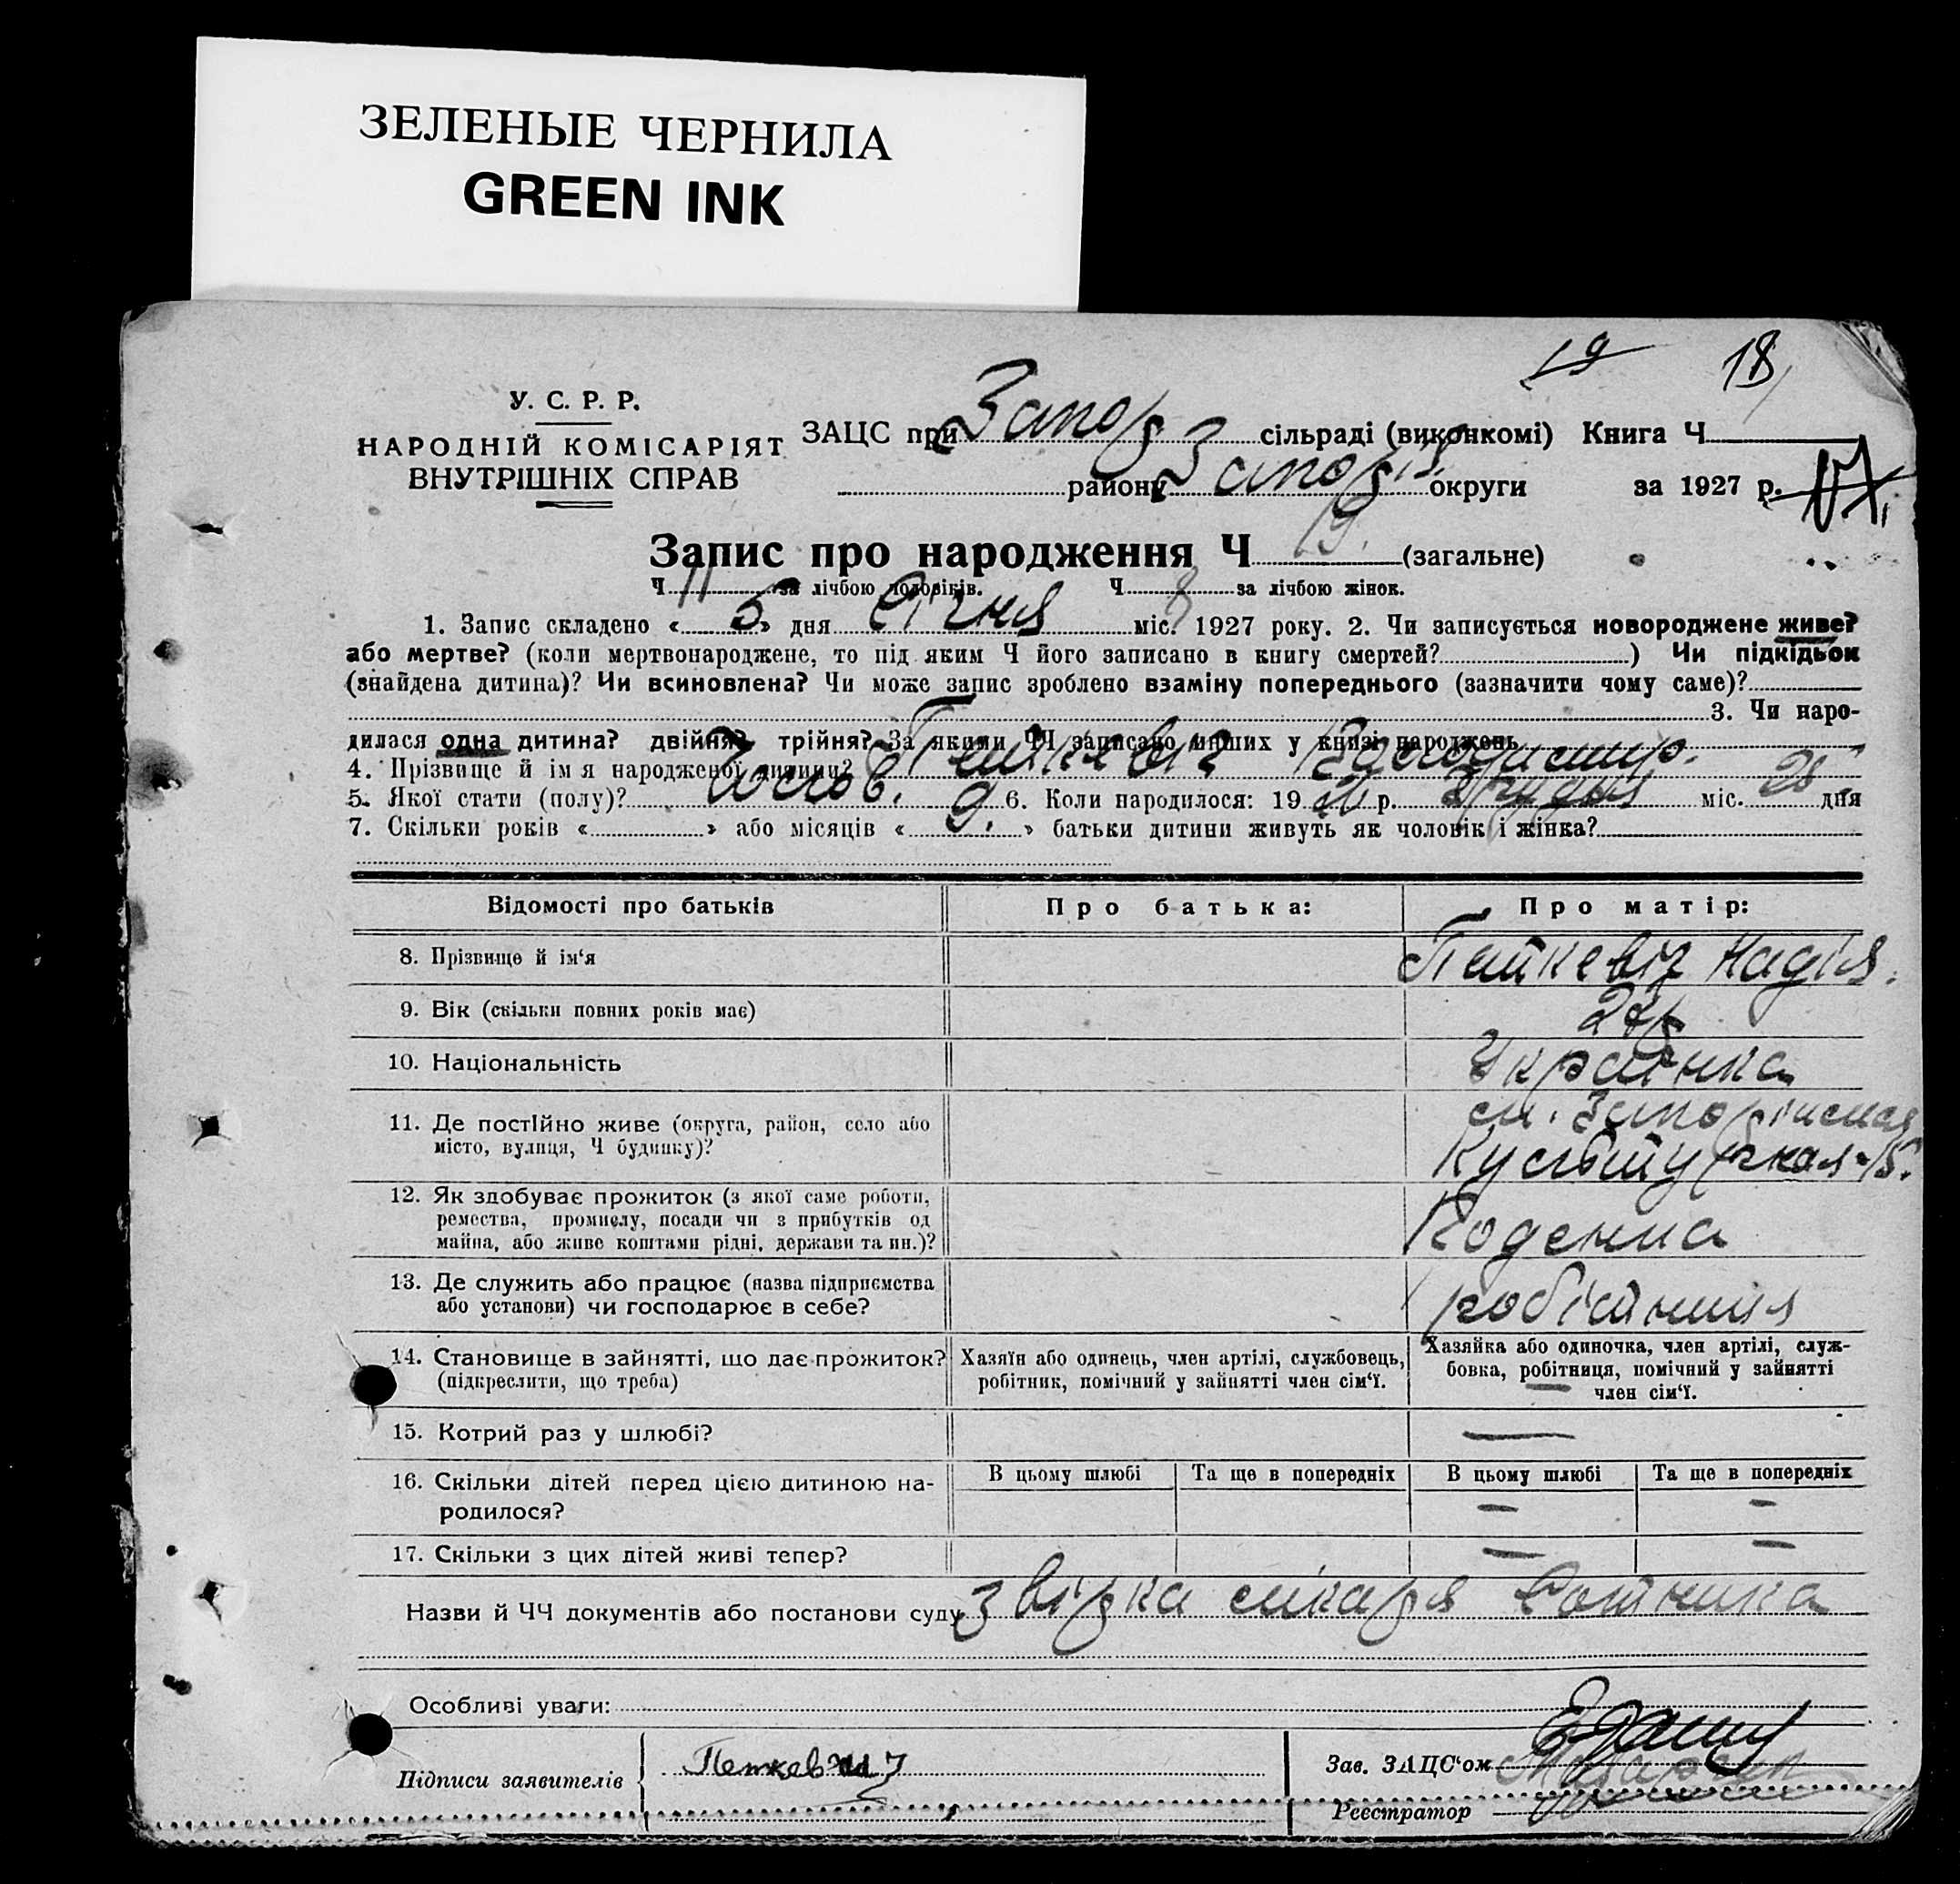 ЗЕЛЕНЫЕ ЧЕРНИЛА
GREEN INK
19 18
У. С. Р. Р.
НАРОДНІЙ КОМІСАРІЯТ
ВНУТРІШНІХ СПРАВ
ЗАЦС при Запор сільраді (виконкомі) Книга Ч
району Запоріз округи за 1927 р. 17
Запис про народження Ч 19. (загальне)
Ч 11 за лічбою чоловіків. Ч 8 за лічбою жінок.
1. Запис складено « 5 » дня Січня міс. 1927 року. 2. Чи записується новороджене живе?
або мертве? (коли мертвонароджене, то під яким Ч його записано в книгу смертей? ) Чи підкідьок
(знайдена дитина)? Чи всиновлена? Чи може запис зроблено взаміну попереднього (зазначити чому саме)?
3. Чи наро-
дилася одна дитина? двійня? трійня? За якими ЧЧ записано инших у книзі народжень
4. Прізвище й імя народженої дитини? Петкевіч
5. Якої стати (полу)? Чолов. 6. Коли народилося: 19 26 р. Грудня міс. 28 дня
7. Скільки років « » або місяців « 9. » батьки дитини живуть як чоловік і жінка?
Відомості про батьків Про батька: Про матір:
8. Прізвище й ім‘я Петкевіч Надія.
9. Вік (скільки повних років має)
10. Національність Українка
11. Де постійно живе (округа, район, село або
місто, вулиця, Ч будинку)?
12. Як здобуває прожиток (з якої саме роботи,
ремества, промислу, посади чи з прибутків од
майна, або живе коштами рідні, держави та ин.)? Поденна
13. Де служить або працює (назва підприємства
або установи) чи господарює в себе? робітниця
14. Становище в зайнятті, що дає прожиток?
(підкреслити, що треба)
Хазяїн або одинець, член артілі, службовець,
робітник, помічний у зайнятті член сім‘ї.
Хазяйка або одиночка, член артілі, служ-
бовка, робітниця, помічний у зайнятті
член сім‘ї.
15. Котрий раз у шлюбі? —
16. Скільки дітей перед цією дитиною на-
родилося?
В цьому шлюбі Та ще в попередніх В цьому шлюбі Та ще в попередніх
— —
17. Скільки з цих дітей живі тепер? — —
Назви й ЧЧ документів або постанови суду звідка лікаря Сотника
Особливі уваги:
Підписи заявителів Петкевич
Зав. ЗАЦС‘ом
Реєстратор